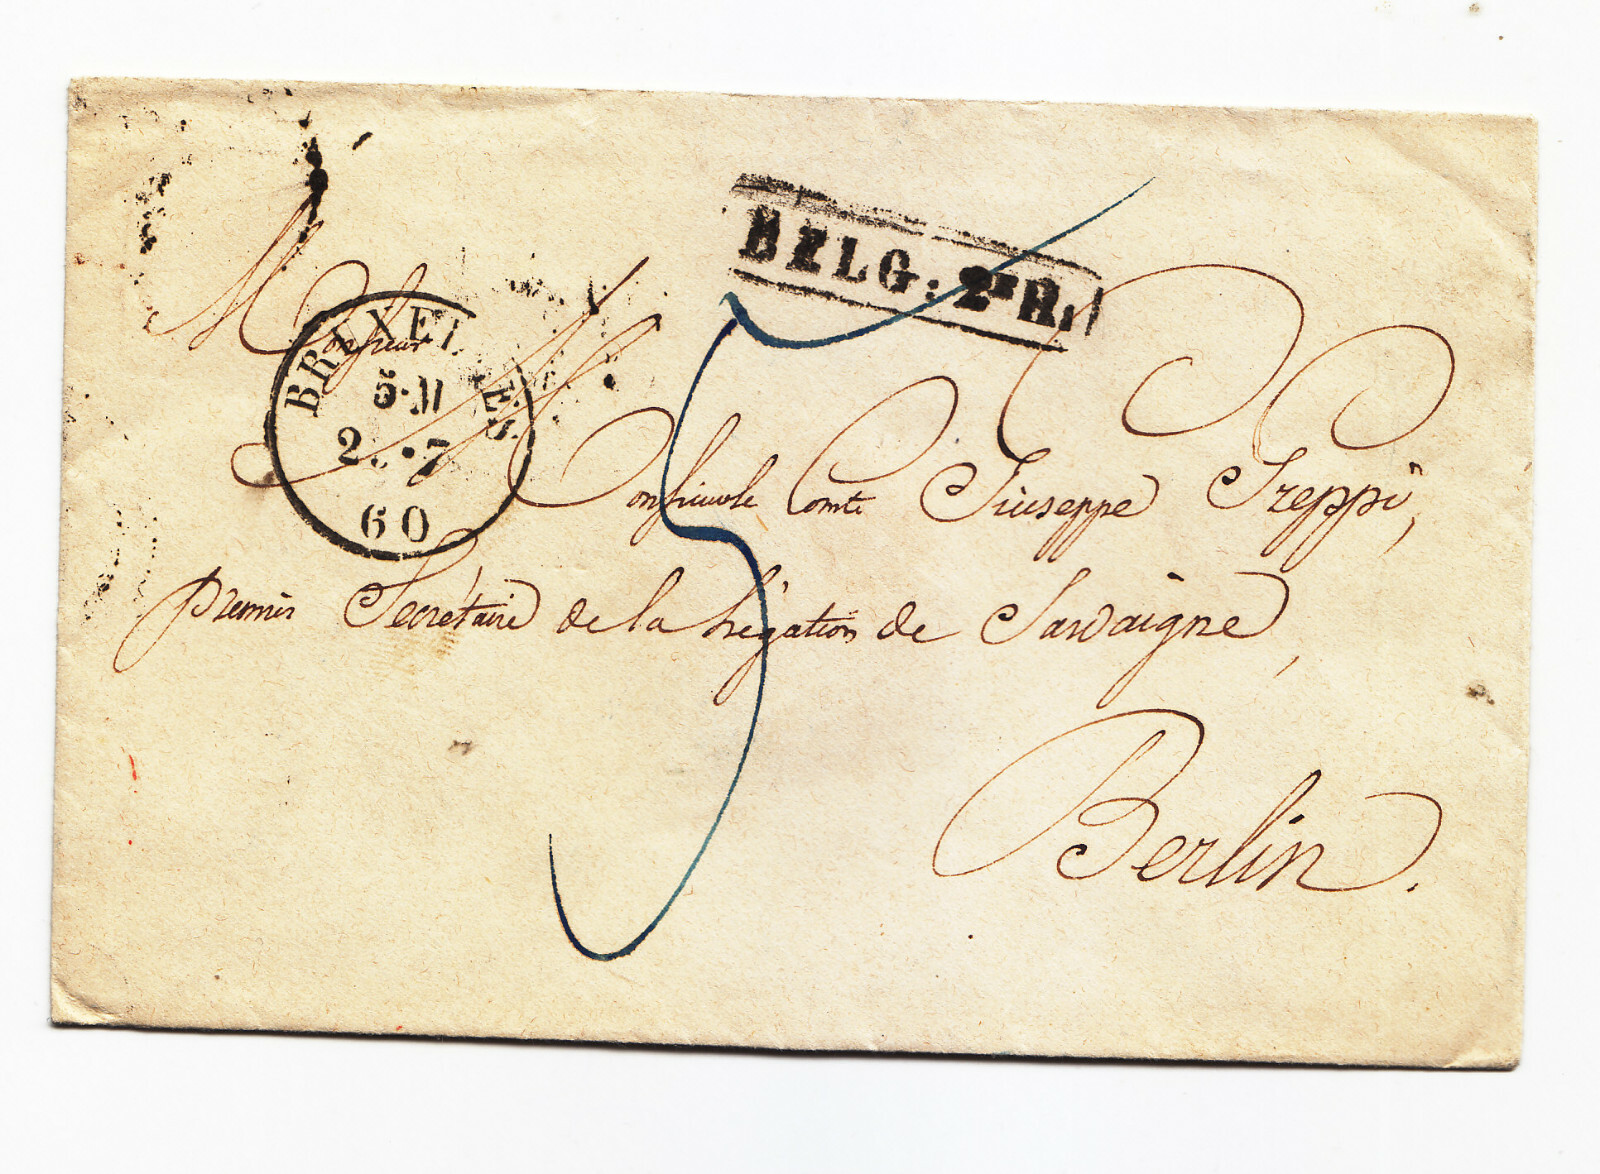 BELG: 2ᴱ R.
Monsieur
BRUXELLES
5·M
2.·7
60
Monsieur le Comte Giuseppe Greppi,
premier Secrétaire de la Légation de Sardaigne,
Berlin.
5